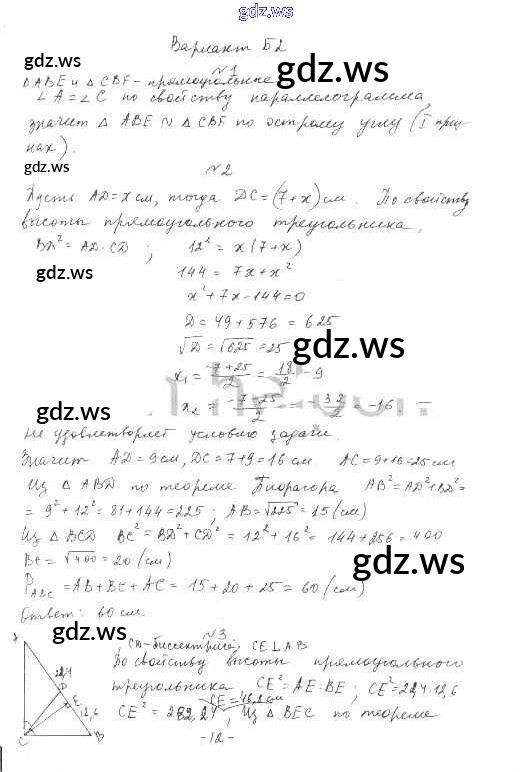 gdz.ws
Вариант Б2
gdz.ws
gdz.ws
№1
Δ ABE и Δ CBF - прямоугольные
∠A = ∠C по свойству параллелограмма,
значит Δ ABE ~ Δ CBF по острому углу (I приз-
нак).
gdz.ws
№2
Пусть AD = x см, тогда DC = (7+x) см. По свойству
высоты прямоугольного треугольника,
BD² = AD · CD ; 12² = x(7+x)
144 = 7x + x²
gdz.ws
x² + 7x - 144 = 0
D = 49 + 576 = 625
√D = √625 = 25
gdz.ws
x₁ = (-7+25)/2 = 18/2 = 9
x₂ = (-7-25)/2 = -32/2 = -16 —
gdz.ws
не удовлетворяет условию задачи.
Значит AD = 9 см, DC = 7+9 = 16 см AC = 9+16 = 25 см
Из Δ ABD по теореме Пифагора AB² = AD² + BD² =
= 9² + 12² = 81 + 144 = 225 ; AB = √225 = 15 (см)
gdz.ws
Из Δ BCD BC² = BD² + CD² = 12² + 16² = 144 + 256 = 400
BC = √400 = 20 (см)
gdz.ws
P ABC = AB + BC + AC = 15 + 20 + 25 = 60 (см)
Ответ: 60 см.
gdz.ws
№3
CD - биссектриса, CE ⊥ AB
По свойству высоты прямоугольного
треугольника CE² = AE · BE ; CE² = 22,4 · 12,6
CE = 16,8 см
CE² = 282,24 ; Из Δ BEC по теореме
22,4
D
E
12,6
C
B
-12-
gdz.ws